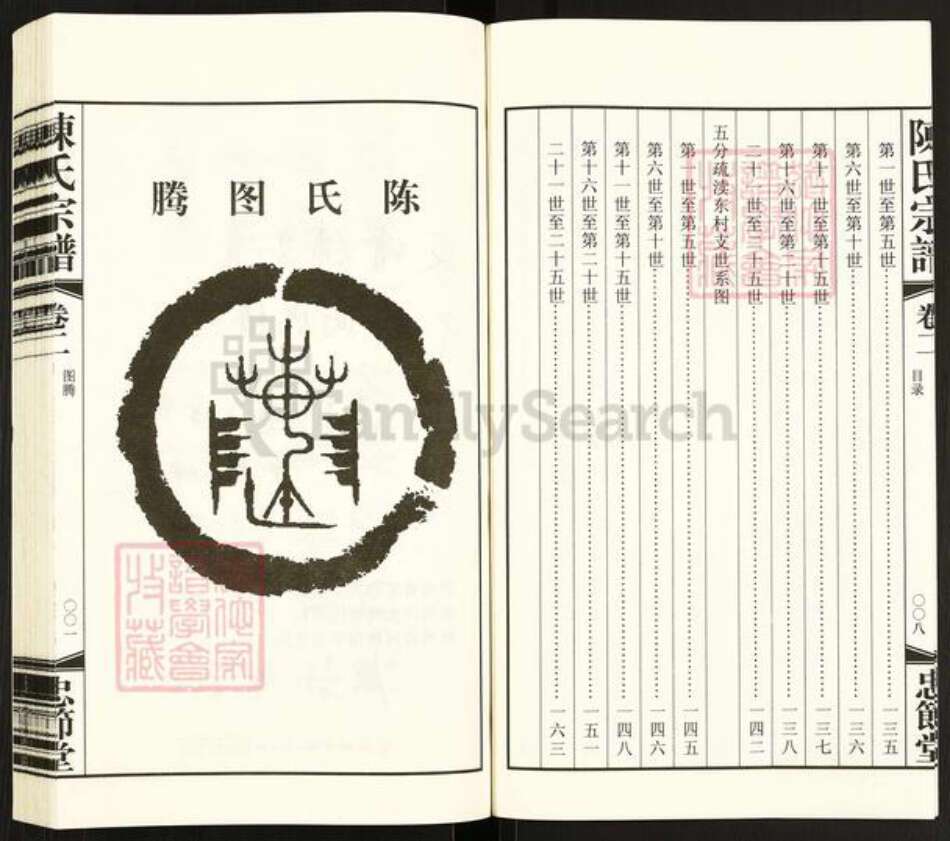 陳氏宗譜
卷二
目录
〇〇八
忠節堂
第一世至第五世 一三五
第六世至第十世 一三六
第十一世至第十五世 一三七
第十六世至第二十世 一三八
二十一世至二十五世 一四二
五分疏渎东村支世系图
第一世至第五世 一四五
第六世至第十世 一四六
第十一世至第十五世 一四八
第十六世至第二十世 一五一
二十一世至二十五世 一六三
陈氏图腾
陳氏宗譜
卷二
图腾
〇〇一
忠節堂
FamilySearch